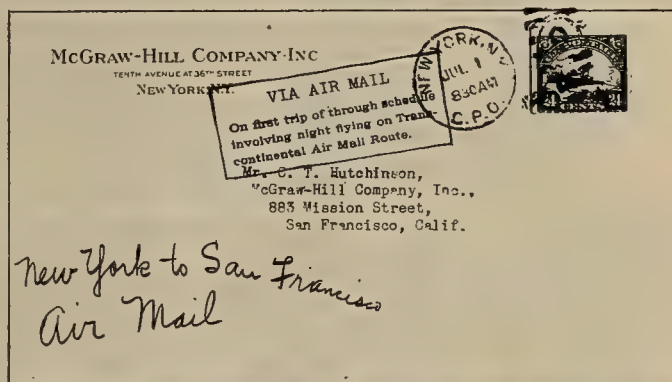 McGRAW-HILL COMPANY·INC
TENTH AVENUE AT 36TH STREET
NEW YORK,N.Y.
VIA AIR MAIL
On first trip of through schedule
involving night flying on Trans-
continental Air Mail Route.
NEW YORK, N.Y.
JUL 1
830AM
G.P.O.
24 CENTS 24
Mr. C. T. Hutchinson,
McGraw-Hill Company, Inc.,
883 Mission Street,
San Francisco, Calif.
New York to San Francisco
Air Mail